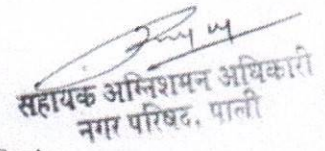 सहायक अग्निशमन अधिकारी
नगर परिषद, पाली